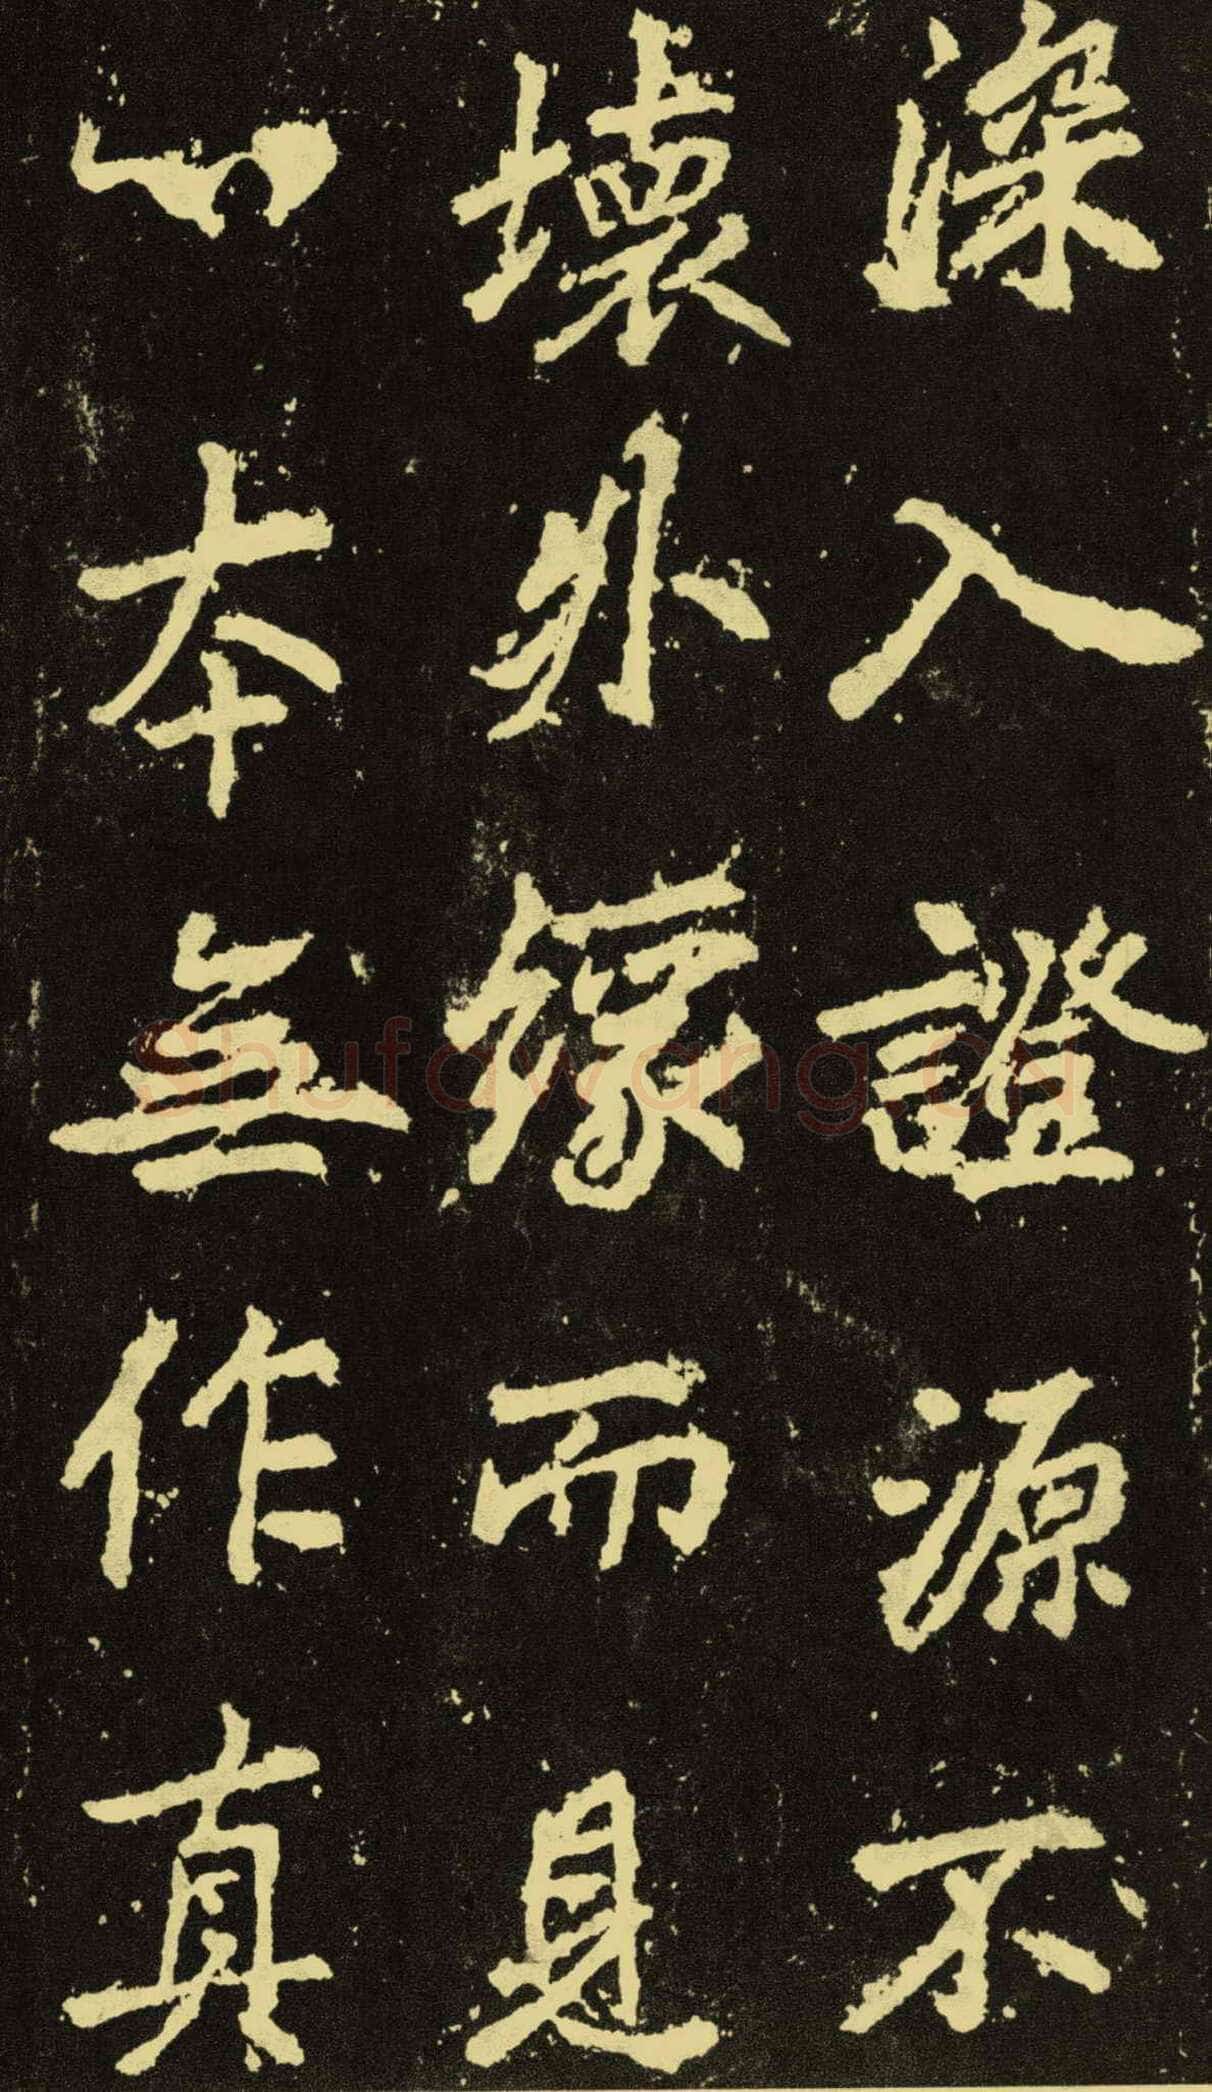 深入證源不
壞外緣而見
心本無作真
Shufawang.CN